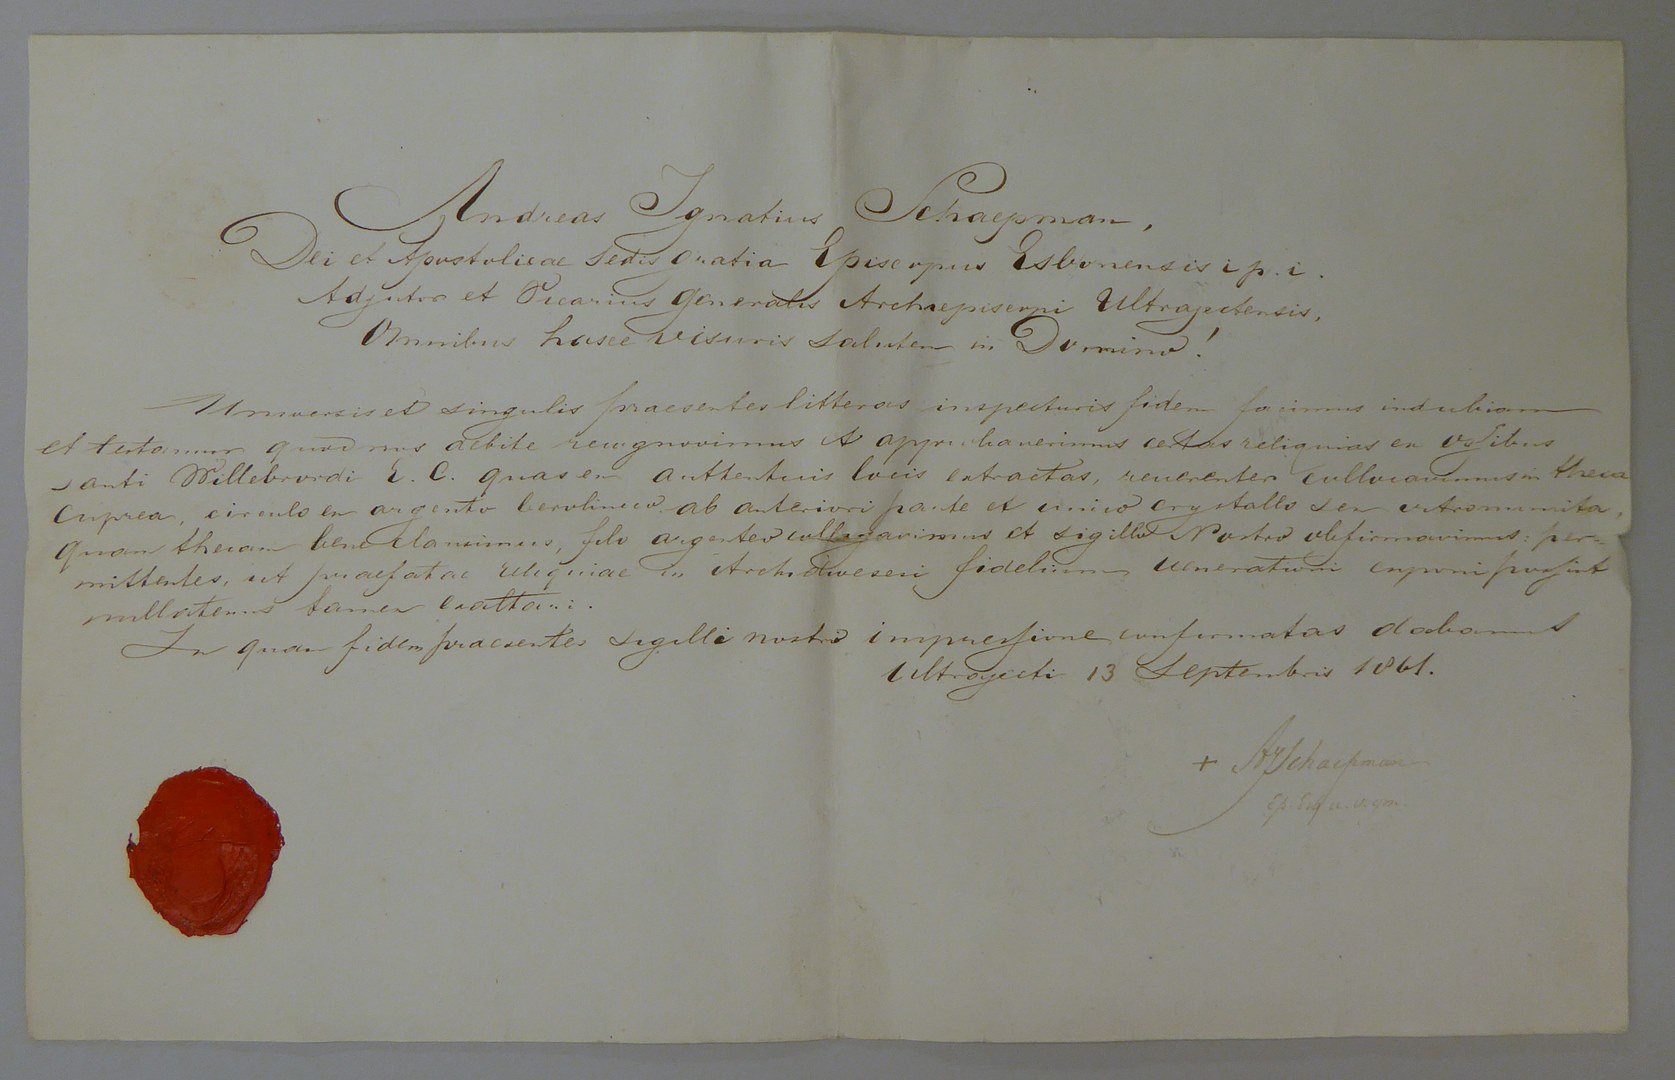 Andreas Ignatius Schaepman,
Dei et Apostolicae Sedis gratia Episcopus Esbonensis i. p. i.
Adjutor et Vicarius generalis Archiepiscopi Ultrajectensis,
Omnibus hasce visuris salutem in Domino!
Universis et singulis praesentes litteras inspecturis fidem facimus indubiam
et testamur quod nos debite recognovimus et approbaverimus certas reliquias ex ossibus
santi Willebrordi E. C. quas ex authenticis locis extractas, reverenter collocavimus in theca
cuprea, circulo ex argento berolineo ab anteriori parte et unico crystallo seu vitro munita,
quam thecam bene clausimus, filo argenteo colligavimus et sigillo Nostro obfirmavimus: per-
mittentes, ut praefatae reliquiae in Archidioecesi fidelium venerationi exponi possint
nullatenus tamen
In quam fidem praesentes sigilli nostro impressione confirmatas dabamus
Ultrajecti 13 Septembris 1861.
+ AI Schaepman